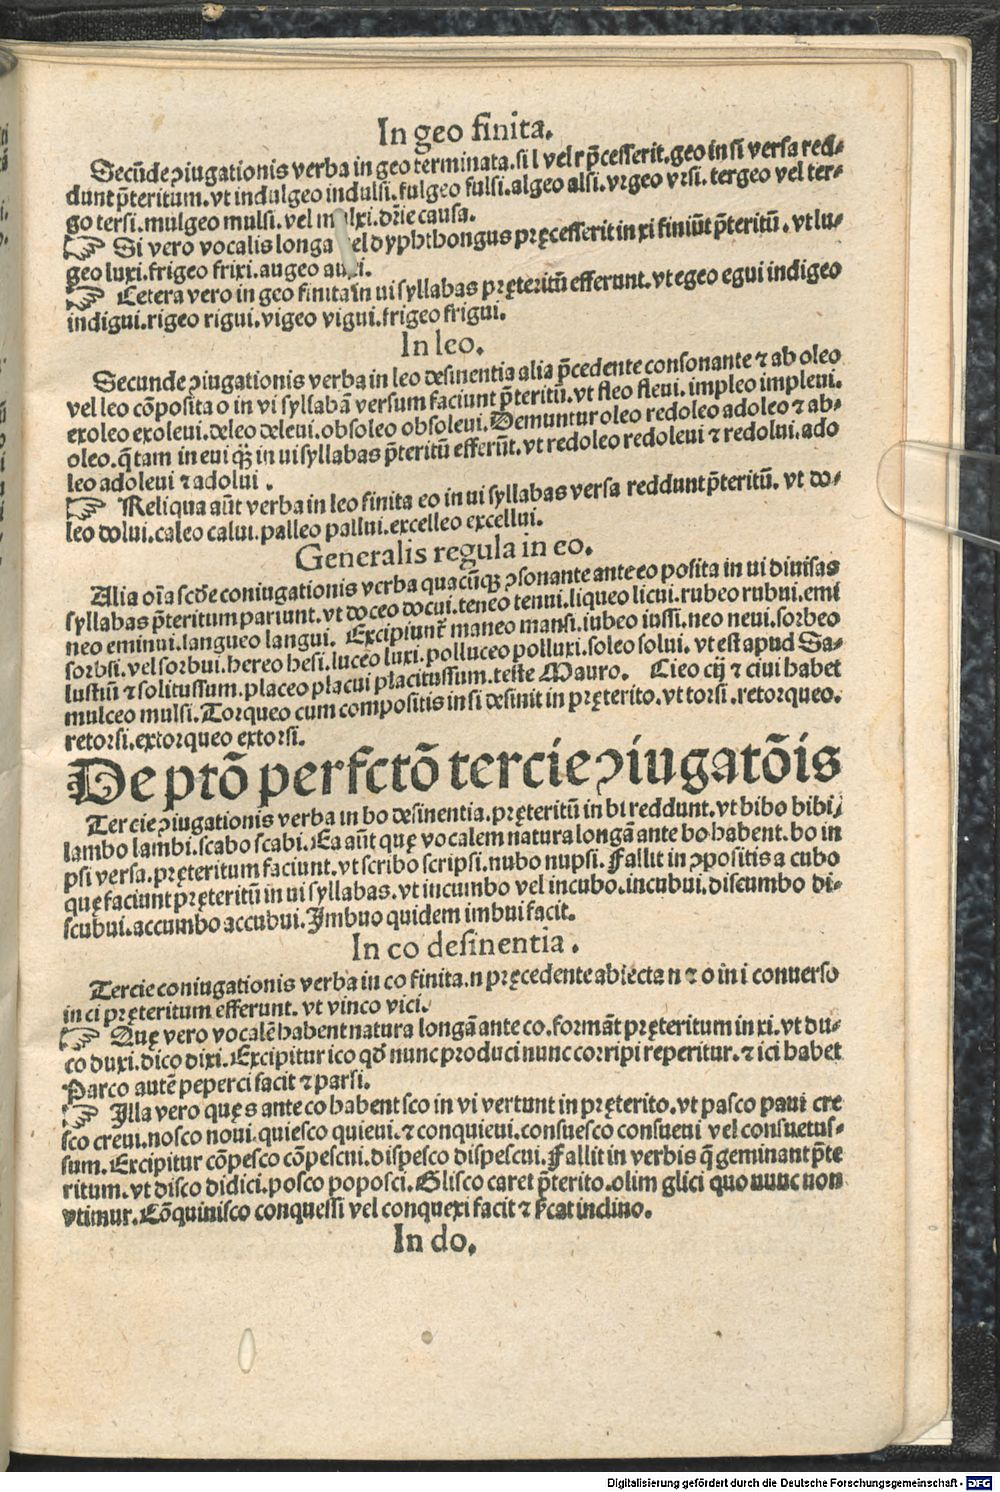 In geo finita.
Secūde ꝯiugationis verba in geo terminata. si l vel r p̄cesserit. geo in si versa red-
dunt p̄teritum. vt indulgeo indulsi. fulgeo fulsi. algeo alsi. vrgeo vrsi. tergeo vel ter-
go tersi. mulgeo mulsi. vel mulxi. dr̄ie causa.
☞ Si vero vocalis longa vel dyphthongus pręcesserit in xi finiūt p̄teritū. vt lu-
geo luxi. frigeo frixi. augeo auxi.
☞ Cetera vero in geo finita in ui syllabas pręteritū efferunt. vt egeo egui indigeo
indigui. rigeo rigui. vigeo vigui. frigeo frigui.
In leo.
Secunde ꝯiugationis verba in leo desinentia alia p̄cedente consonante ⁊ ab oleo
vel leo cōposita o in vi syllabā versum faciunt p̄teritū. vt fleo fleui. impleo impleui.
exoleo exoleui. deleo deleui. obsoleo obsoleui. Demuntur oleo redoleo adoleo ⁊ ab-
oleo. q̄ tam in eui qꝫ in ui syllabas p̄teritū efferūt. vt redoleo redoleui ⁊ redolui. ado
leo adoleui ⁊ adolui.
☞ Reliqua aūt verba in leo finita eo in ui syllabas versa reddunt p̄teritū. vt do-
leo dolui. caleo calui. palleo pallui. excelleo excellui.
Generalis regula in eo.
Alia oīa scd̄e coniugationis verba quacūqꝫ ꝯsonante ante eo posita in ui diuisas
syllabas p̄teritum pariunt. vt doceo docui. teneo tenui. liqueo licui. rubeo rubui. emi
neo eminui. langueo langui. Excipiunt̄ maneo mansi. iubeo iussi. neo neui. sorbeo
sorbsi. vel sorbui. hereo hesi. luceo luxi. polluceo polluxi. soleo solui. vt est apud Sa-
lustiū ⁊ solitussum. placeo placui placitussum. teste Mauro. Cieo cij ⁊ ciui habet
mulceo mulsi. Torqueo cum compositis in si desinit in pręterito. vt torsi. retorqueo.
retorsi. extorqueo extorsi.
De ptō perfctō tercie ꝯiugatōis
Tercie ꝯiugationis verba in bo desinentia. pręteritū in bi reddunt. vt bibo bibi/
lambo lambi. scabo scabi. Ea aūt quę vocalem natura longā ante bo habent. bo in
psi versa. pręteritum faciunt. vt scribo scripsi. nubo nupsi. Fallit in ꝯpositis a cubo
quę faciunt pręteritū in ui syllabas. vt incumbo vel incubo. incubui. discumbo di-
scubui. accumbo accubui. Imbuo quidem imbui facit.
In co desinentia.
Tercie coniugationis verba in co finita. n pręcedente abiecta n ⁊ o in i conuerso
in ci pręteritum efferunt. vt vinco vici.
☞ Quę vero vocalē habent natura longā ante co. formāt pręteritum in xi. vt du-
co duxi. dico dixi. Excipitur ico qd̄ nunc produci nunc corripi reperitur. ⁊ ici habet
Parco autē peperci facit ⁊ parsi.
☞ Illa vero quę s ante co habent sco in vi vertunt in pręterito. vt pasco paui cre
sco creui. nosco noui. quiesco quieui. ⁊ conquieui. consuesco consueui vel consuetus-
sum. Excipitur cōpesco cōpescui. dispesco dispescui. Fallit in verbis q̄ geminant p̄te
ritum. vt disco didici. posco poposci. Glisco caret p̄terito. olim glici quo nunc non
vtimur. Cōquinisco conquessi vel conquexi facit ⁊ inclino.
In do.
Digitalisierung gefördert durch die Deutsche Forschungsgemeinschaft - DFG